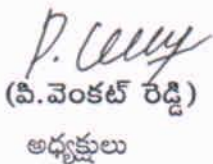 (పి.వెంకట్ రెడ్డి)
అధ్యక్షులు